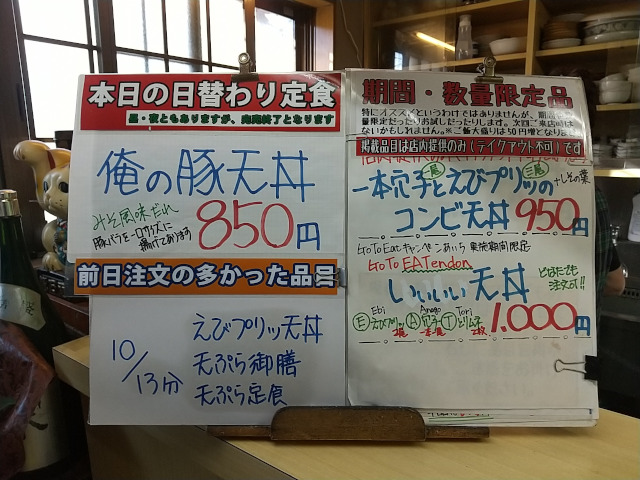 本日の日替わり定食
昼・夜ともありますが、完売終了となります
俺の豚天丼
みそ風味だれ
豚バラを一口サイズに
揚げてあります
850円
前日注文の多かった品目
10/13分
えびプリッツ天丼
天ぷら御膳
天ぷら定食
期間・数量限定品
特にオススメというわけではありませんが、期間
量限定だったりお試しだったりします。次回ご来店時は
ないかもしれません。※ご飯大盛りは50円増となりま
掲載品目は店内提供のみ(テイクアウト不可)です
一本穴子とえびプリッツの
一尾 三尾
+しその葉
コンビ天丼 950円
Go To Eat キャンペーンあいち 実施期間限定
Go To EATendon
いぃぃぃ天丼
どなたでも
注文可!!
Ebi Anago Tori
E えびプリッ A 穴子 T とりムネ
2尾 一本 2枚
1,000円